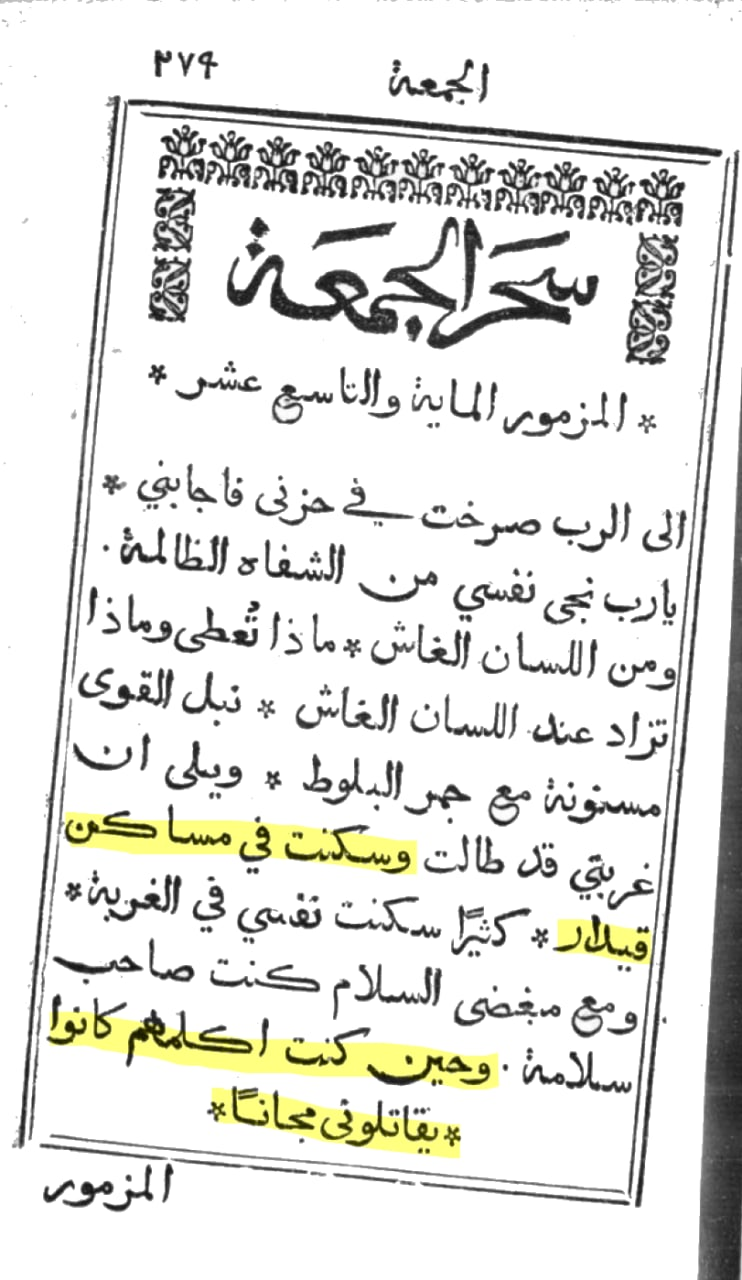 الجمعة
٢٧٩
سَحَر الجمعَة
* المزمور الماية والتاسع عشر *
الى الرب صرخت في حزنى فاجابني *
يارب نجى نفسي من الشفاه الظالمة .
ومن اللسان الغاش * ماذا تُعطى وماذا
تزاد عند اللسان الغاش * نبل القوى
مسنونة مع جمر البلوط * ويلى ان
غربتي قد طالت وسكنت في مساكن
قيدار * كثيرًا سكنت نفسي في الغربة *
ومع مبغضى السلام كنت صاحب
سلامة . وحين كنت اكلمهم كانوا
* يقاتلونى مجانًا *
المزمور